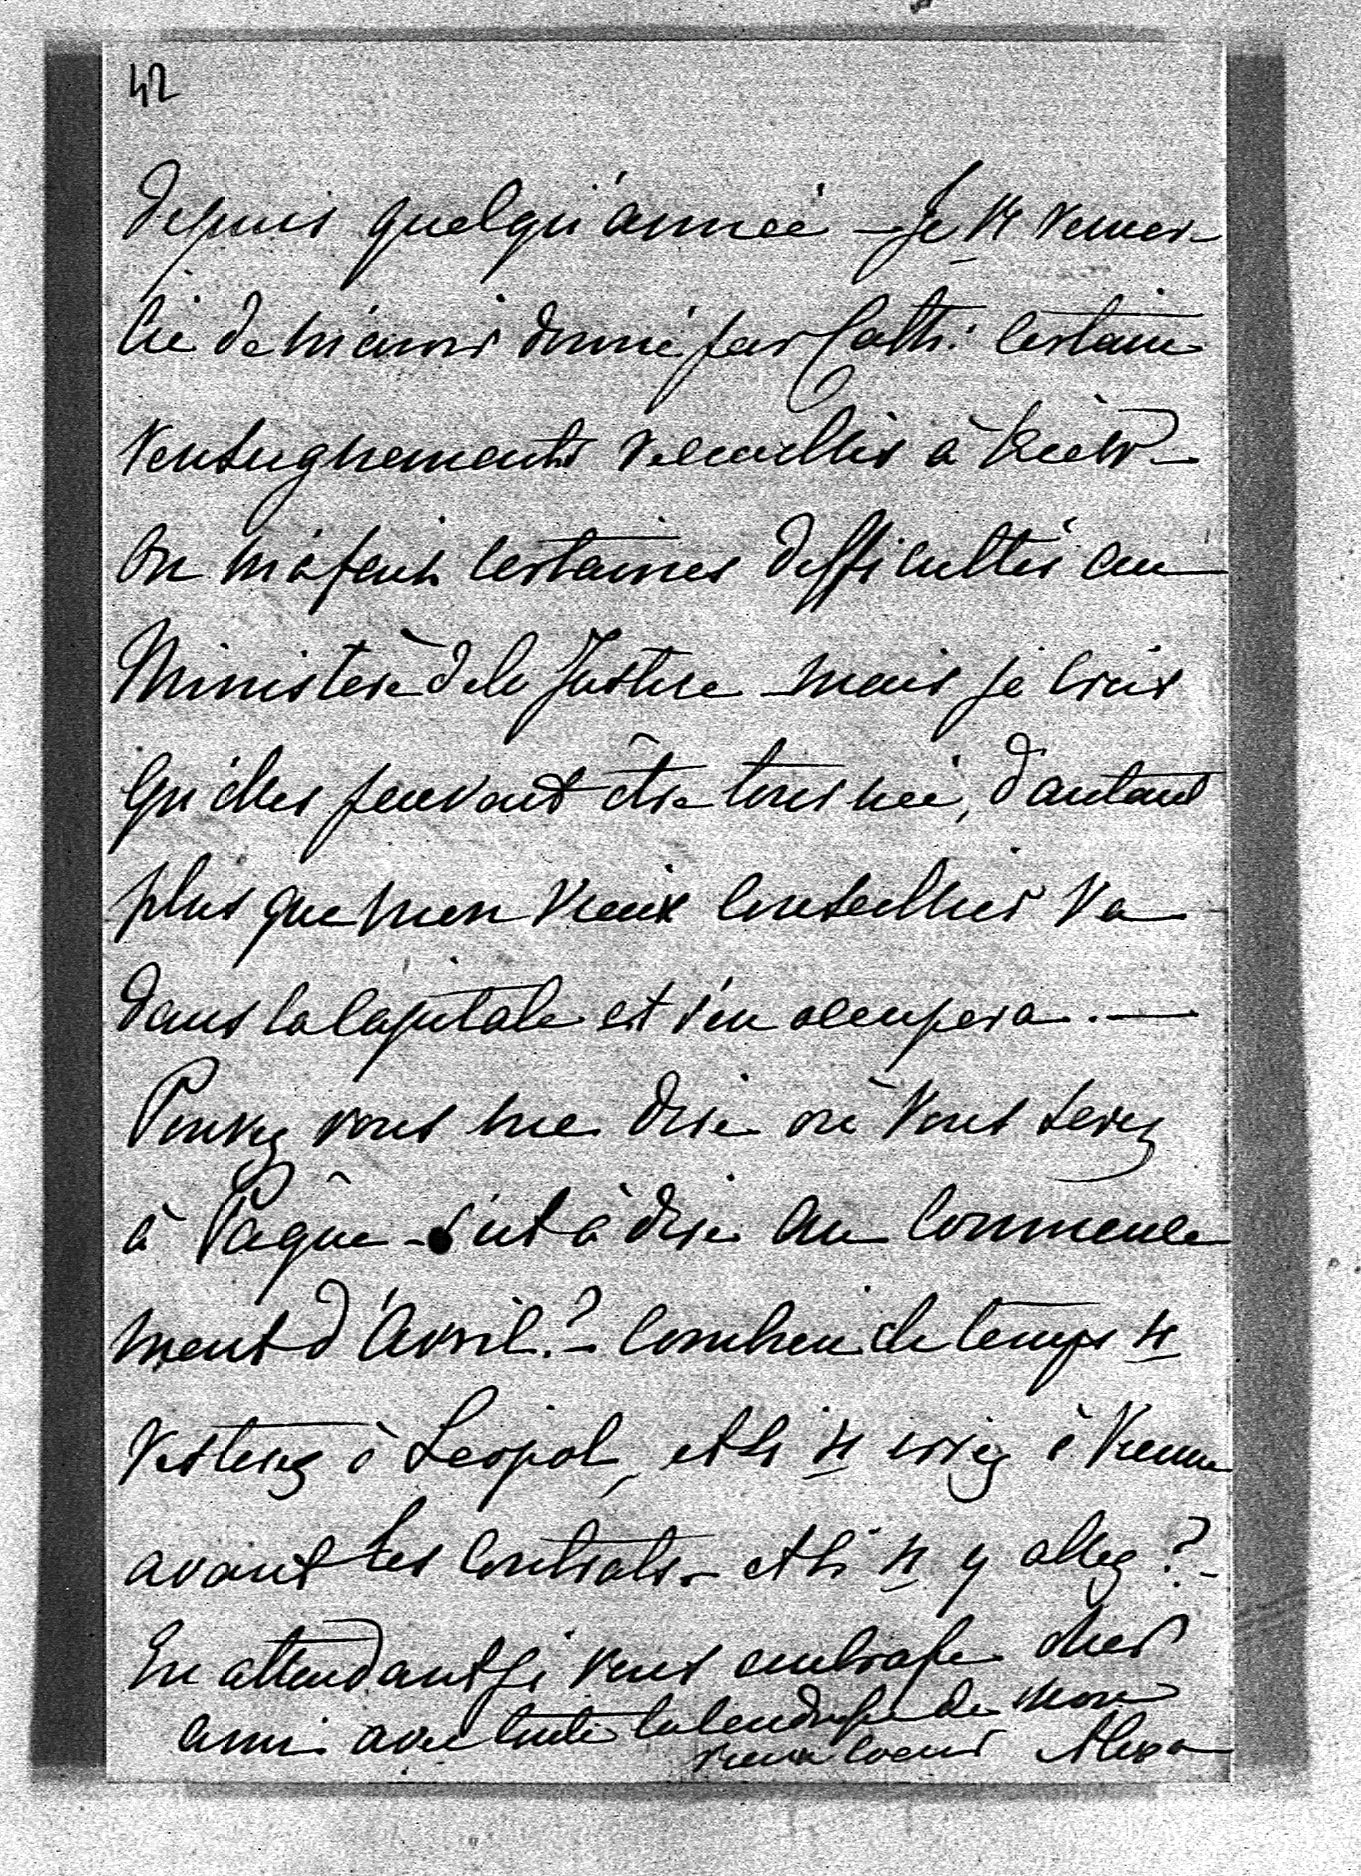 42
depuis quelqu'année – Je vs remer-
cie de m'avoir donné par Cath: certains
renseignements recueillis à Kieff –
On m'a fait certaines difficultés au
Ministère de la Justice – mais je crois
qu'elles peuvent être tournée, d'autant
plus que mon vieux conseiller va
dans la capitale et s'en occupera. —
Pouvez vous me dire où vous serez
à Pâque – c'est à dire au commence
ment d'Avril? – Combien de temps vs
resterez à Léopol, et si vs irez à Vienne
avant les contrats – et si vs y allez? –
En attendant je vous embrasse cher
ami avec toute la tendresse de mon
vieux coeur Alexa